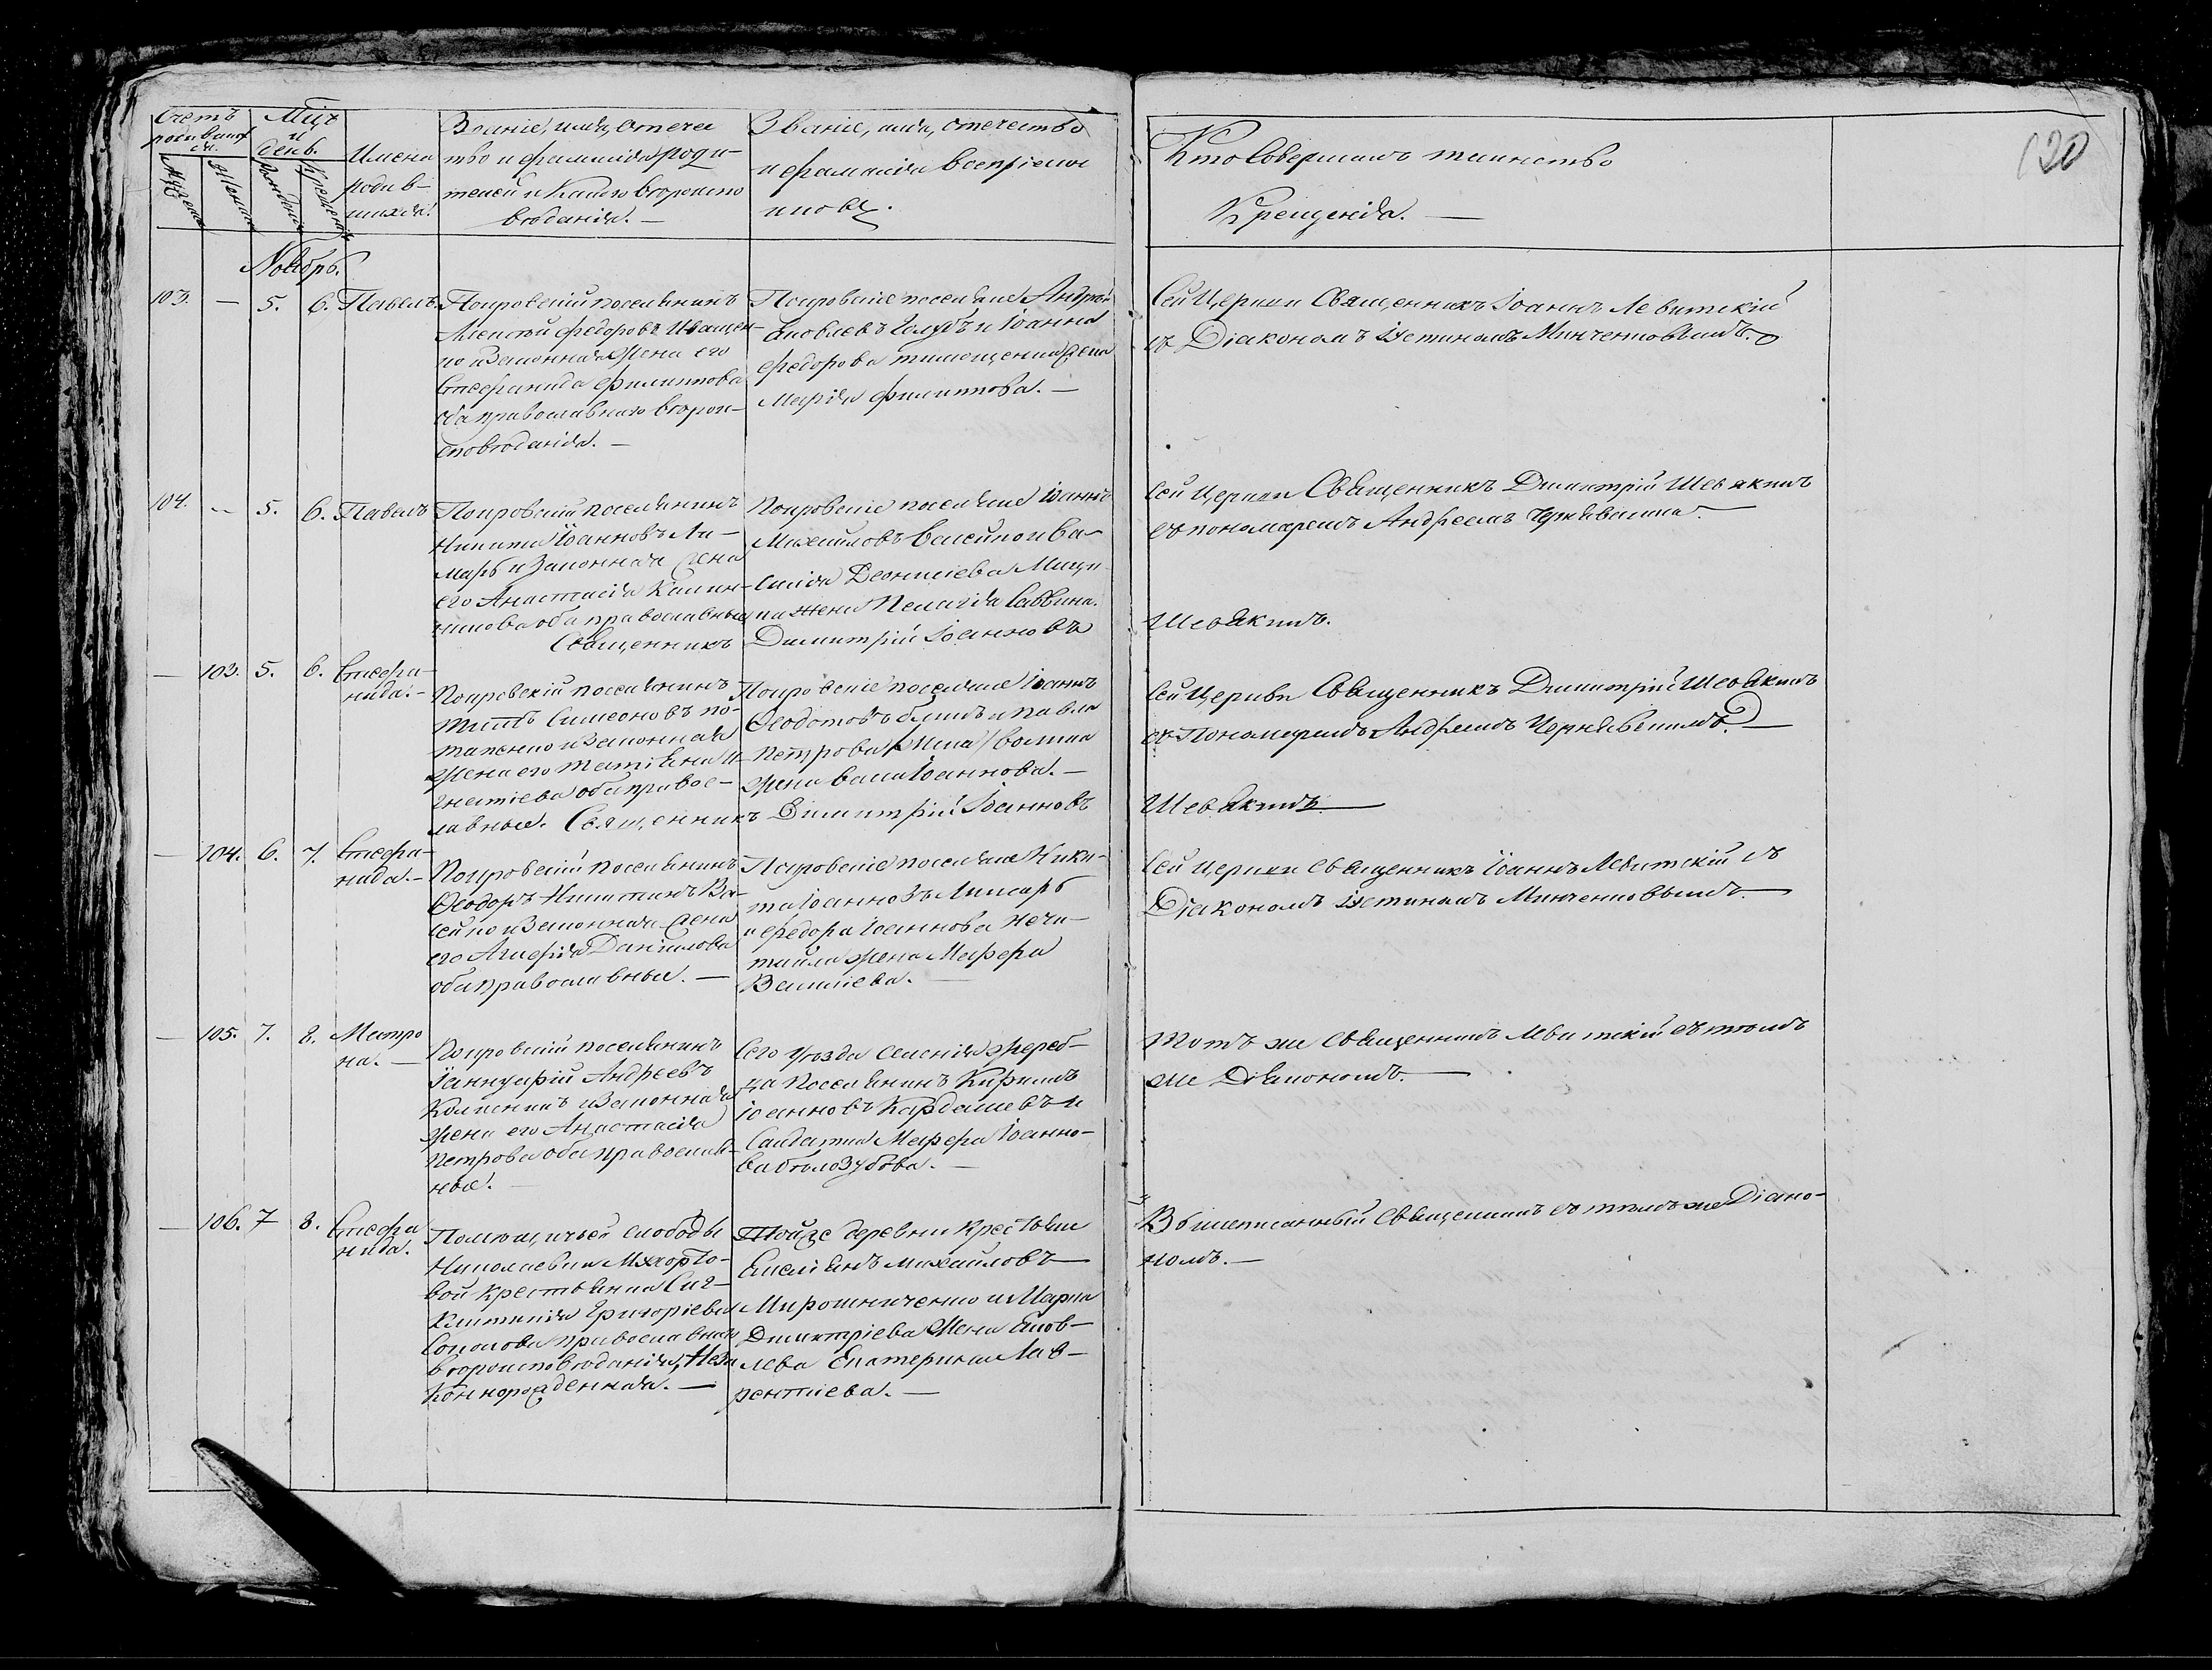 Счетъ
родившихся.
Мцъ
и
день.
Имена
родив-
шихся.
Званіе, имя, отечес
тво и фамилія роди-
телей и какого вѣроиспо
вѣданія. —
Званіе, имя, отечество
и фамилія воспріем
никовъ.
Кто совершалъ таинство
Крещенія. —
120
Мужеска
Женска
Рожденія
Крещенія
Ноябрь.
103. — 5. 6. Павелъ.
Покровскій поселянинъ
Алексѣй Федоровъ Иващен-
ко и законная жена его
Стефанида Филиппова
оба православнаго вѣрои-
сповѣданія. —
Покровскіе поселяне Андрей
Яковлевъ Голубъ и Іоанна
Федорова жена
Марія Филиппова. —
Сей Церкви Священникъ Іоаннъ Левитскій
съ Діакономъ Іустиномъ Минченковымъ.
104. — 5. 6. Павелъ
Покровскій поселянинъ
Никита Іоанновъ Ли-
марь и законная жена
его Анастасія Калин-
никова оба православные
Священникъ
Покровскіе поселяне Іоаннъ
Михайловъ и Ва-
силія Деонисіева
жена Пелагія Саввина.
Димитрій Іоанновъ
Сей Церкви Священникъ Димитрій Шевякинъ
съ пономаремъ Андреемъ
Шевякинъ.
— 103. 5. 6. Стефа-
нида. —
Покровскій поселянинъ
Титъ Симеоновъ По-
тапенко и законная
жена его Татіана И-
гнатіева оба правос-
лавные. Священникъ
Покровскіе поселяне Іоаннъ
Ѳеодотовъ и Павла
Петрова
жена Іоаннова. —
Димитрій Іоанновъ
Сей Церкви Священникъ Димитрій Шевякинъ
съ Пономаремъ Андреемъ Чернявскимъ. —
Шевякинъ —
— 104. 6. 7. Стефа-
нида. —
Покровскій поселянинъ
Ѳеодоръ Никитинъ Ва-
сейко и законная жена
его Агафія Даніилова
оба православные. —
Покровскіе поселяне Ники-
та Іоанновъ Лимарь
и Федора Іоаннова Нечи-
тайла жена Марфа
Василіева. —
Сей Церкви Священникъ Іоаннъ Левитскій съ
Діакономъ Іустиномъ Минченковымъ. —
— 105. 7. 8. Матро
на. —
Покровскій поселянинъ
Іаннуарій Андреевъ
и законная
жена его Анастасія
Петрова оба православ-
ные. —
Сего уѣзда селенія Жереб-
ца поселянинъ Кирилъ
Іоанновъ Кардашевъ и
Солдатка Марфа Іоанно-
ва Бѣлозубова. —
Тотъ же Священникъ Левитскій съ тѣмъ
же Діакономъ. —
— 106. 7 8. Стефа
нида.
Помѣщичьей слободы
Николаевки
вой крестьянки
Григоріевы
Соколова православнаго
вѣроисповѣданія, Неза
коннорожденная. —
Тойже деревни крестьяне
Емеліянъ Михайловъ —
Мирошниченко и Марка
Димитріева жена Яков-
лева Екатерина Лав-
рентіева. —
Вышеписанный Священникъ съ тѣмъ же Діако-
номъ. —